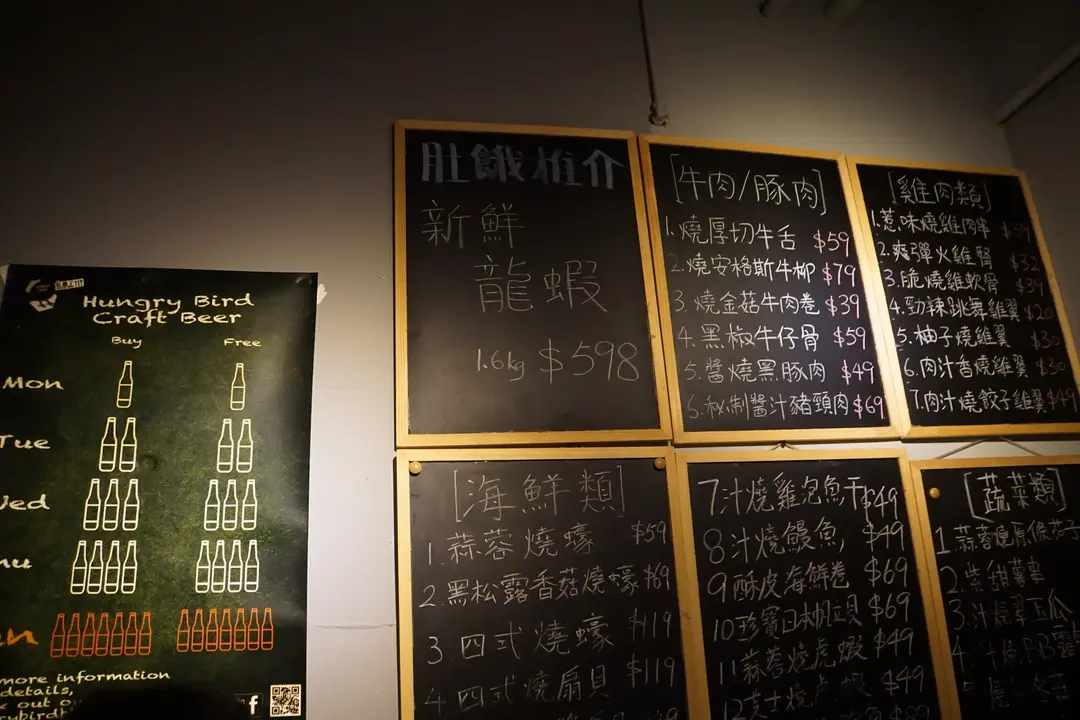 Hungry Bird
Craft Beer
Buy Free
Mon
Tue
more information
details,
肚餓推介
新鮮
龍蝦
1.6kg $598
[牛肉/豚肉]
1.燒厚切牛舌 $59
2.燒安格斯牛柳 $79
3.燒金菇牛肉卷 $39
4.黑椒牛仔骨 $59
5.醬燒黑豚肉 $49
6.秘制醬汁豬頸肉 $69
[雞肉類]
1.惹味燒雞肉串
2.爽彈火雞腎 $32
3.脆燒雞軟骨 $39
4.勁辣跳舞雞翼 $20
5.柚子燒雞翼 $30
6.肉汁香燒雞翼 $30
7.肉汁燒餃子雞翼 $49
[海鮮類]
1.蒜蓉燒蠔 $59
2.黑松露香菇燒蠔 $69
3.四式燒蠔 $119
4.四式燒扇貝 $119
7汁燒雞泡魚干 $49
8汁燒鰻魚 $49
9酥皮海鮮卷 $69
10珍寶日本帆立貝 $69
11蒜蓉燒虎蝦 $49
12芝士燒虎蝦 $49
[蔬菜類]
1.蒜蓉燒原條茄子
2.紫甜薯夾
3.汁燒翠玉瓜